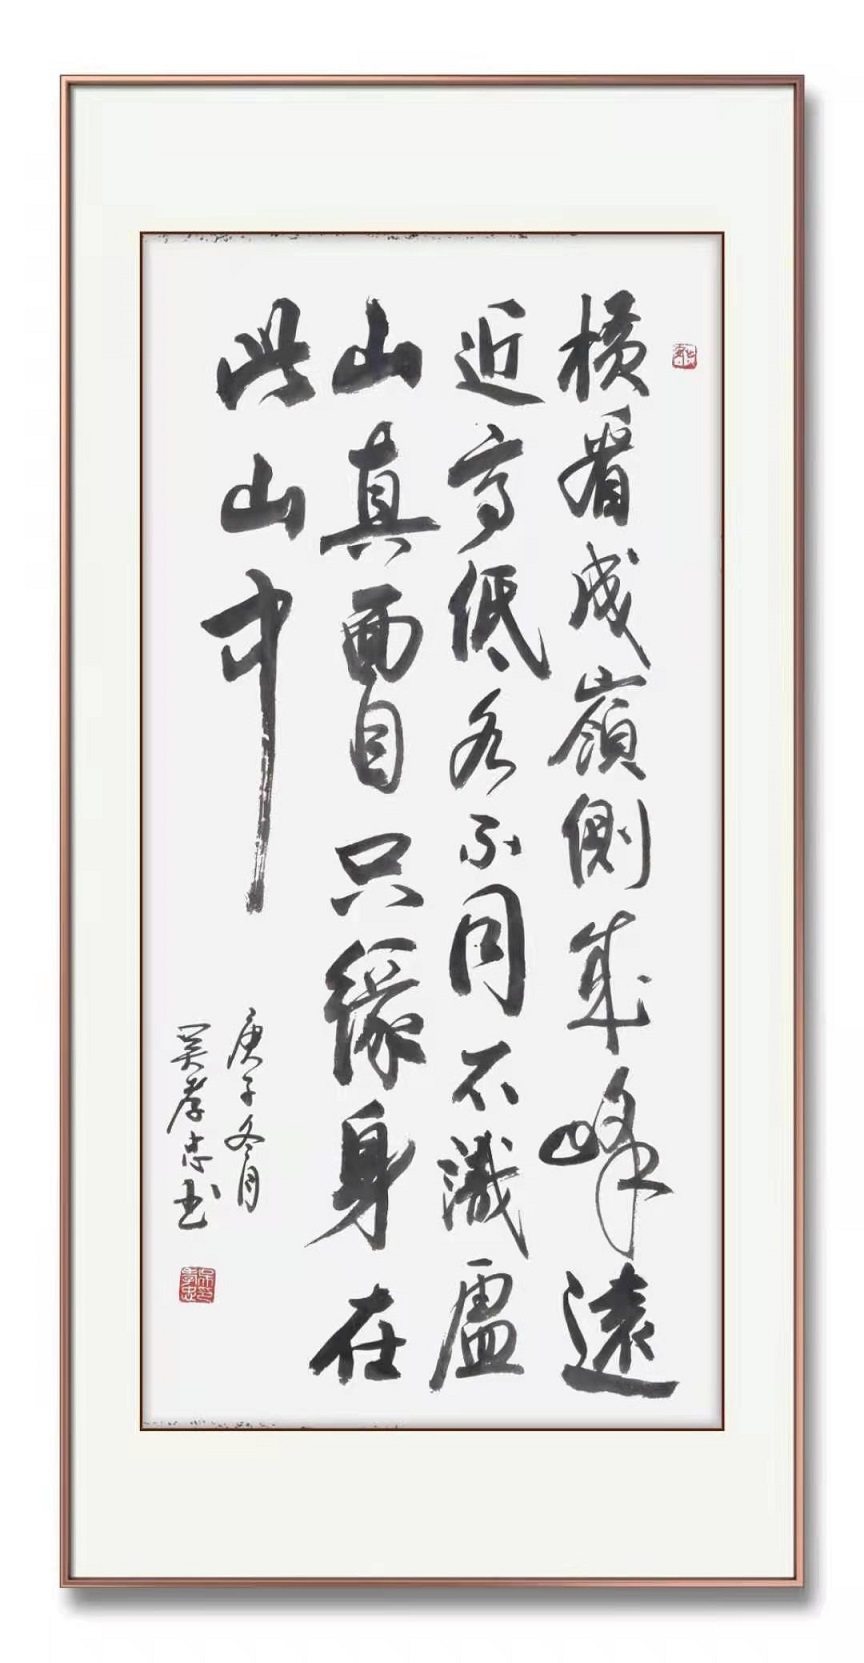 橫看成嶺側成峰遠
近高低各不同不識盧
山真面目只緣身在
此山中
庚子冬月
吴孝忠书